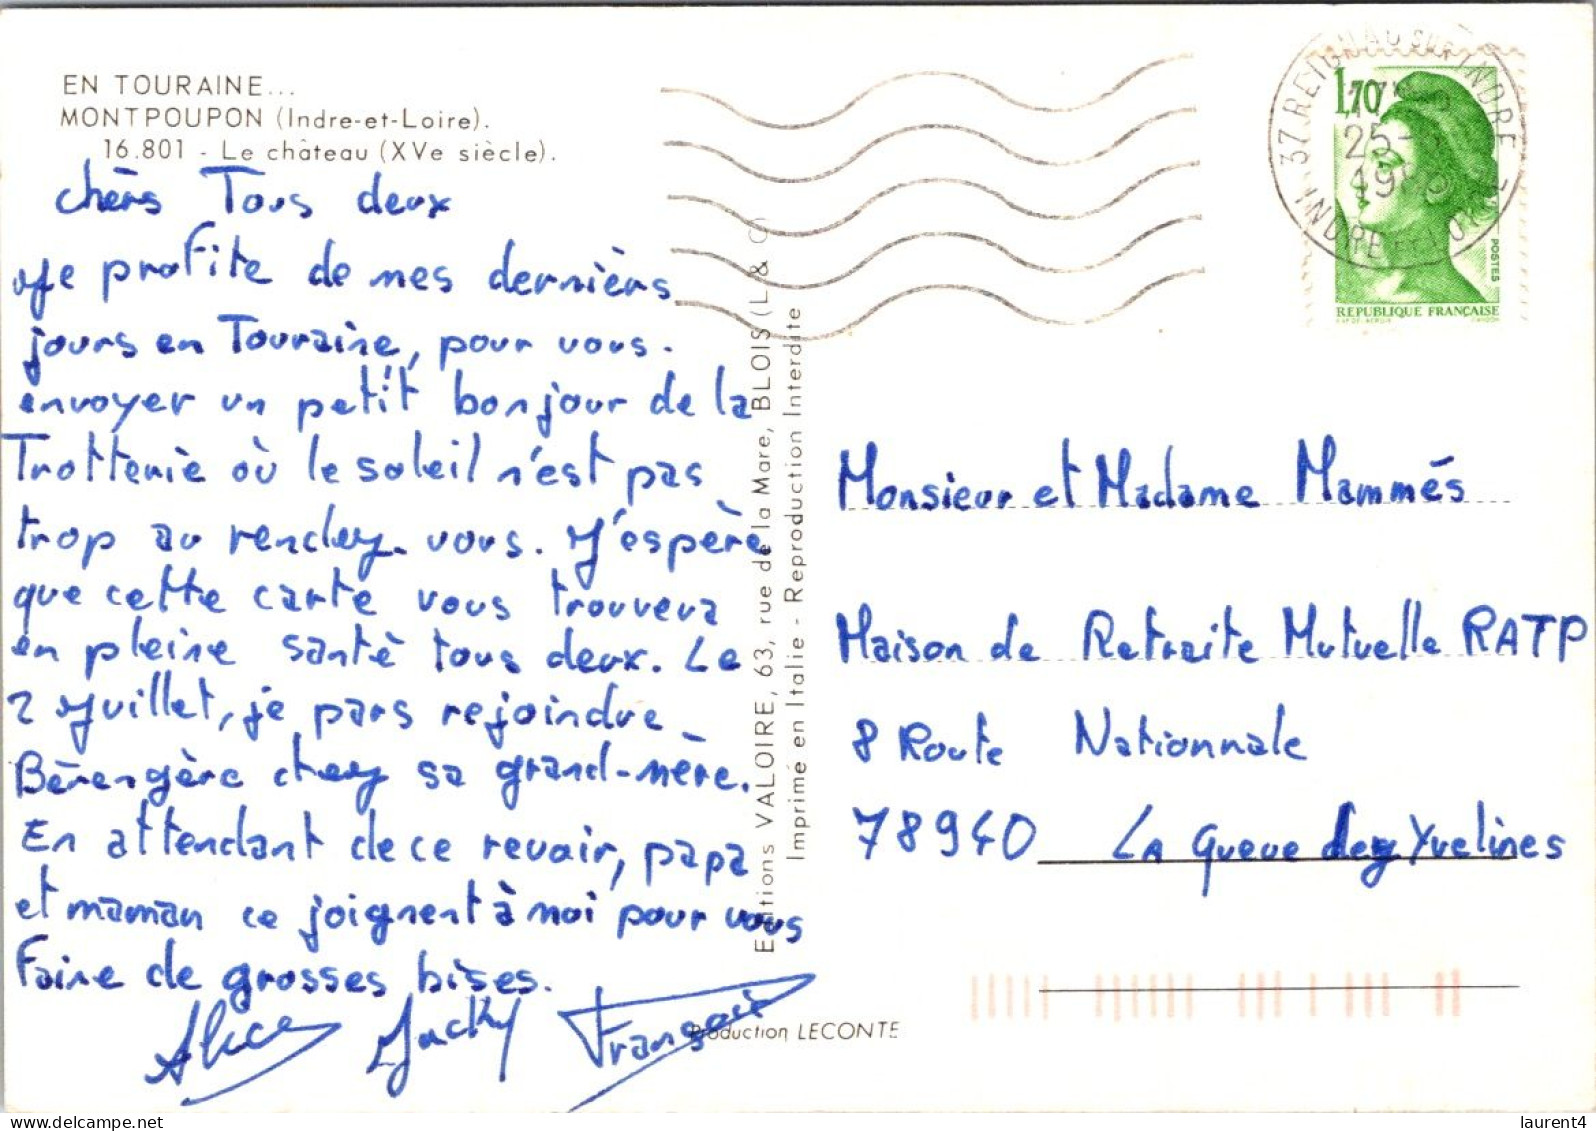 EN TOURAINE...
MONTPOUPON (Indre-et-Loire).
16.801 - Le château (XVe siècle).
chèrs Tous deux
Je profite de mes dernièrs
jours en Touraine, pour vous.
envoyer un petit bonjour de la
Trotterie où le soleil n'est pas
trop au rendez-vous. J'espère
que cette carte vous trouvera
en pleine santè tous deux. Le
2 Juillet, je pars rejoindre
Bèrengère chez sa grand-mère.
En attendant de ce revoir, papa
et maman ce joignent à moi pour vous
faire de grosses bises.
Alice Jacky François
Editions VALOIRE, 63, rue de la Mare, BLOIS (L & C)
Imprimé en Italie - Reproduction Interdite
Production LECONTE
37 REIGNAC SUR INDRE
INDRE ET LOIRE
25
1,70
POSTES
REPUBLIQUE FRANÇAISE
Monsieur et Madame Mammés
Maison de Retraite Mutuelle RATP
8 Route Nationnale
78940 La Queue lez Yvelines
laurent4